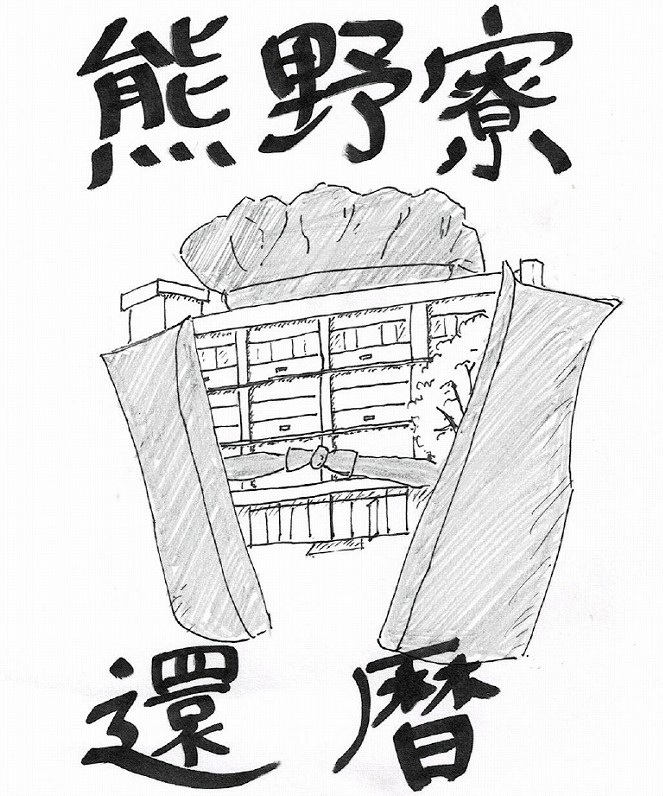 熊野寮
還暦